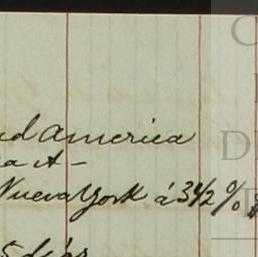 ud America
a A-
Nueva York á 3 1/2 %
5 d/